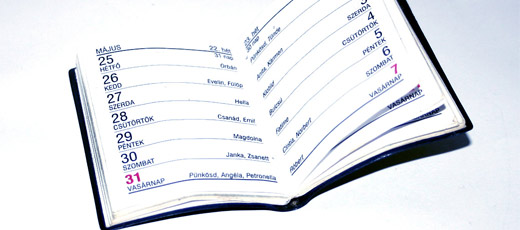 MÁJUS 22. hét
31 nap
25
HÉTFŐ Orbán
26
KEDD Evelin, Fülöp
27
SZERDA Hella
28
CSÜTÖRTÖK Csanád, Emil
29
PÉNTEK Magdolna
30
SZOMBAT Janka, Zsanett
31
VASÁRNAP Pünkösd, Angéla, Petronella
23. hét
30 nap
Tünde
3
SZERDA
Anita, Kármen
4
CSÜTÖRTÖK
Klotild
5
PÉNTEK
Bulcsú
6
SZOMBAT
Fatime
7
VASÁRNAP
Cintia, Norbert
Róbert
VASÁRNAP